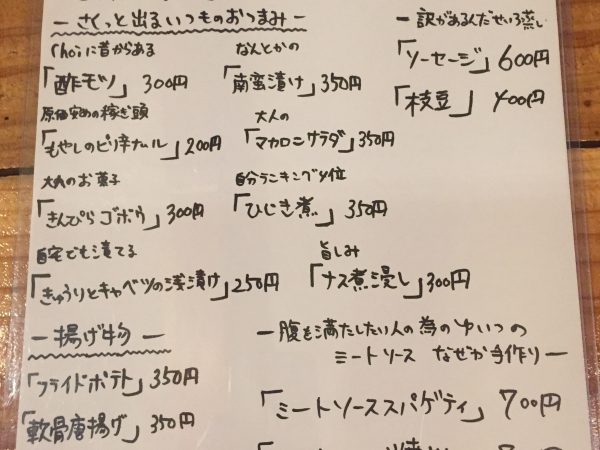 ーさくっと出るいつものおつまみー
choiに昔からある
「酢モツ」300円
なんとかの
「南蛮漬け」350円
原価安めの稼ぎ頭
「もやしのピリ辛ナムル」200円
大人の
「マカロニサラダ」350円
大人のお菓子
「きんぴらゴボウ」300円
自分ランキング4位
「ひじき煮」350円
自宅でも漬てる
「きゅうりとキャベツの浅漬け」250円
旨しみ
「ナス煮浸し」300円
ー訳があるんだせいろ蒸し
「ソーセージ」600円
「枝豆」400円
ー揚げ物ー
「フライドポテト」350円
「軟骨唐揚げ」350円
ー腹を満たしたい人の為のゆいつの
ミートソース なぜか手作りー
「ミートソーススパゲティ」700円